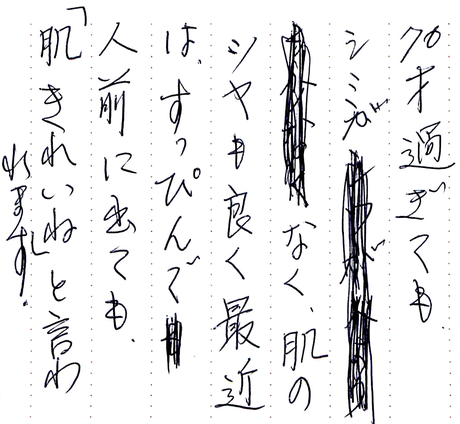 70才過ぎても
シミが
なく、肌の
ツヤも良く最近
は、すっぴんで
人前に出ても、
「肌きれいねと言わ
れます。